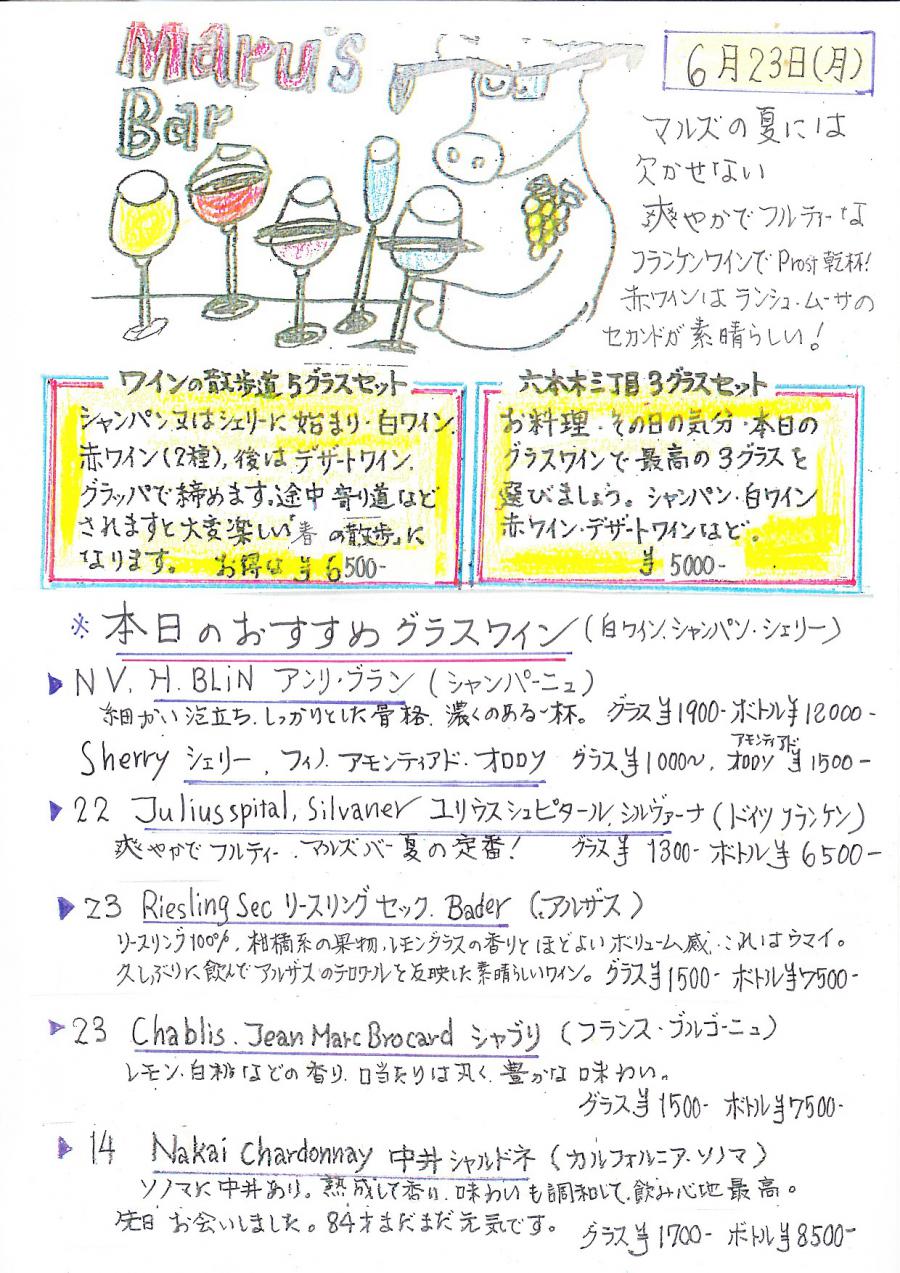 Maru's
Bar
6月23日(月)
マルズの夏には
欠かせない
爽やかでフルティーな
フランケンワインでProst乾杯!
赤ワインはランシュ・ムーサの
セカンドが素晴らしい!
ワインの散歩道5グラスセット
シャンパン又はシェリーに始まり・白ワイン、
赤ワイン(2種)、後はデザートワイン、
グラッパで締めます。途中寄り道など
されますと大変楽しい「春の散歩」に
なります。 お得な ¥6500-
六本木三丁目3グラスセット
お料理・その日の気分・本日の
グラスワインで最高の3グラスを
選びましょう。シャンパン・白ワイン
赤ワイン・デザートワインなど。
¥5000-
※本日のおすすめグラスワイン(白ワイン、シャンパン・シェリー)
NV. H. BLiN アンリ・ブラン (シャンパーニュ)
細かい泡立ち、しっかりとした骨格、濃くのある一杯。 グラス¥1900- ボトル¥12000-
Sherry シェリー、フィノ、アモンティアド・オロロソ グラス¥1000〜、アモンティアド オロロソ ¥1500-
22 Juliusspital, Silvaner ユリウスシュピタール、シルヴァーナ (ドイツ フランケン)
爽やかでフルティー、マルズバー夏の定番! グラス¥1300- ボトル¥6500-
23 Riesling Sec リースリング セック、Bader (アルザス)
リースリング100%、柑橘系の果物、レモングラスの香りとほどよいボリューム感、これはウマイ。
久しぶりに飲んでアルザスのテロワールを反映した素晴らしいワイン。グラス¥1500- ボトル¥7500-
23 Chablis. Jean Marc Brocard シャブリ (フランス・ブルゴーニュ)
レモン、白桃などの香り、口当たりは丸く、豊かな味わい。
グラス¥1500- ボトル¥7500-
14 Nakai Chardonnay 中井シャルドネ (カルフォルニア・ソノマ)
ソノマに中井あり。熟成して香り、味わいも調和して、飲み心地最高。
先日お会いしました。84才まだまだ元気です。 グラス¥1700- ボトル¥8500-